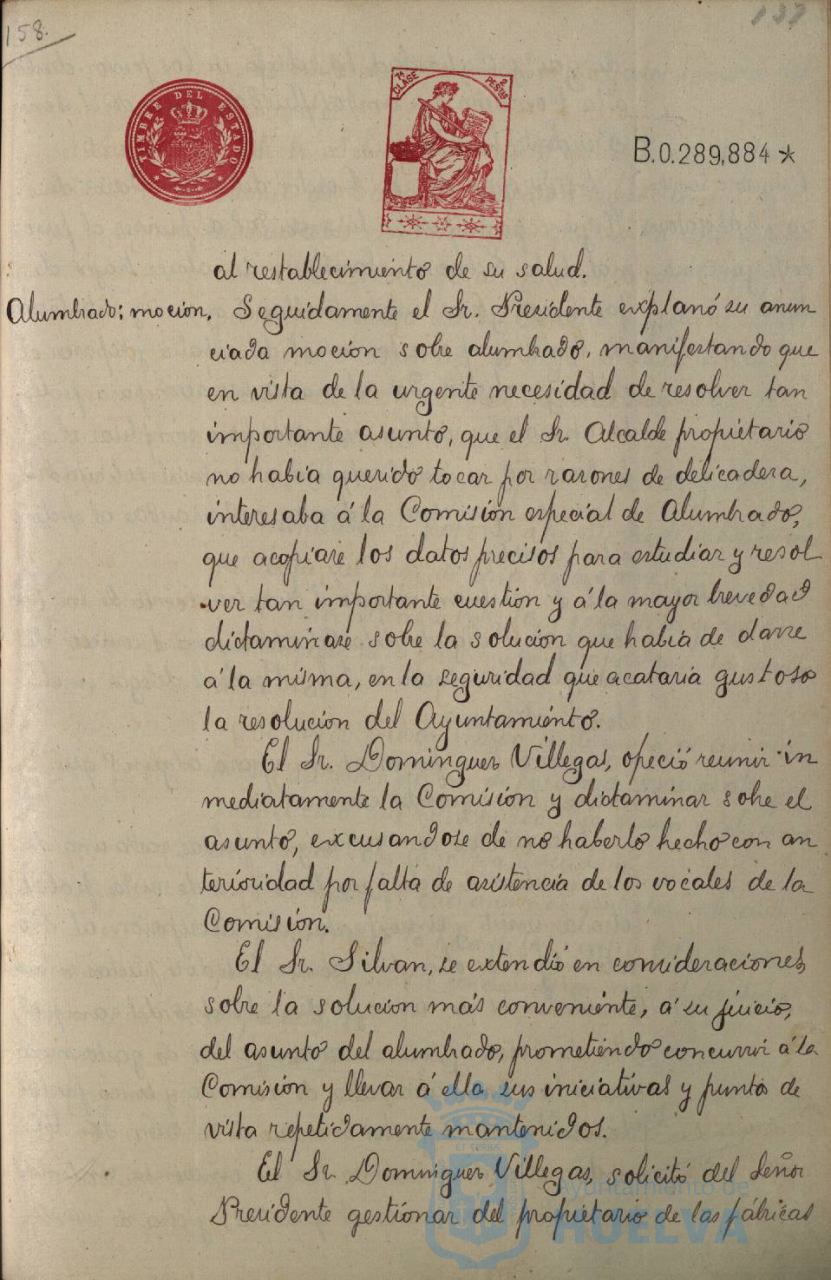 158.
137
TIMBRE DEL ESTADO
7ª CLASE
2 PESETAS
B.0.289,884 *
al restablecimiento de su salud.
Alumbrado; moción. Seguidamente el Sr. Presidente explanó su anun
ciada moción sobre alumbrado, manifestando que
en vista de la urgente necesidad de resolver tan
importante asunto, que el Sr. Alcalde propietario
no había querido tocar por razones de delicadeza,
interesaba á la Comisión especial de Alumbrado,
que acopiase los datos precisos para estudiar y resol
ver tan importante cuestión y á la mayor brevedad
dictaminase sobre la solución que había de darse
á la misma, en la seguridad que acataría gustoso
la resolución del Ayuntamiento.
El Sr. Dominguez Villegas, ofreció reunir in
mediatamente la Comisión y dictaminar sobre el
asunto, excusandose de no haberlo hecho con an
terioridad por falta de asistencia de los vocales de la
Comisión.
El Sr. Silvan, se extendió en consideraciones
sobre la solución más conveniente, á su juicio,
del asunto del alumbrado, prometiendo concurrir á la
Comisión y llevar á ella sus iniciativas y puntos de
vista repetidamente mantenidos.
El Sr. Dominguez Villegas, solicitó del Señor
Presidente gestionar del propietario de las fábricas
Ayuntamiento de
HUELVA